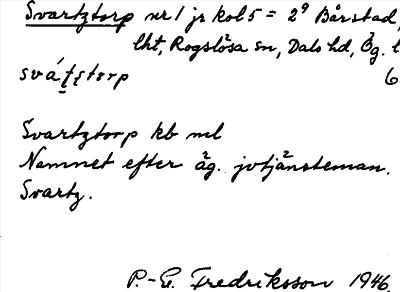 Svartztorp nr 1 jr kol 5 = 2⁹ Bårstad,
lht, Rogslösa sn, Dals hd, Ög. l
sváṭṣtorp 6
Svartztorp kb ml
Namnet efter äg. jvtjänsteman.
Svartz.
P.-G. Fredriksson 1946.